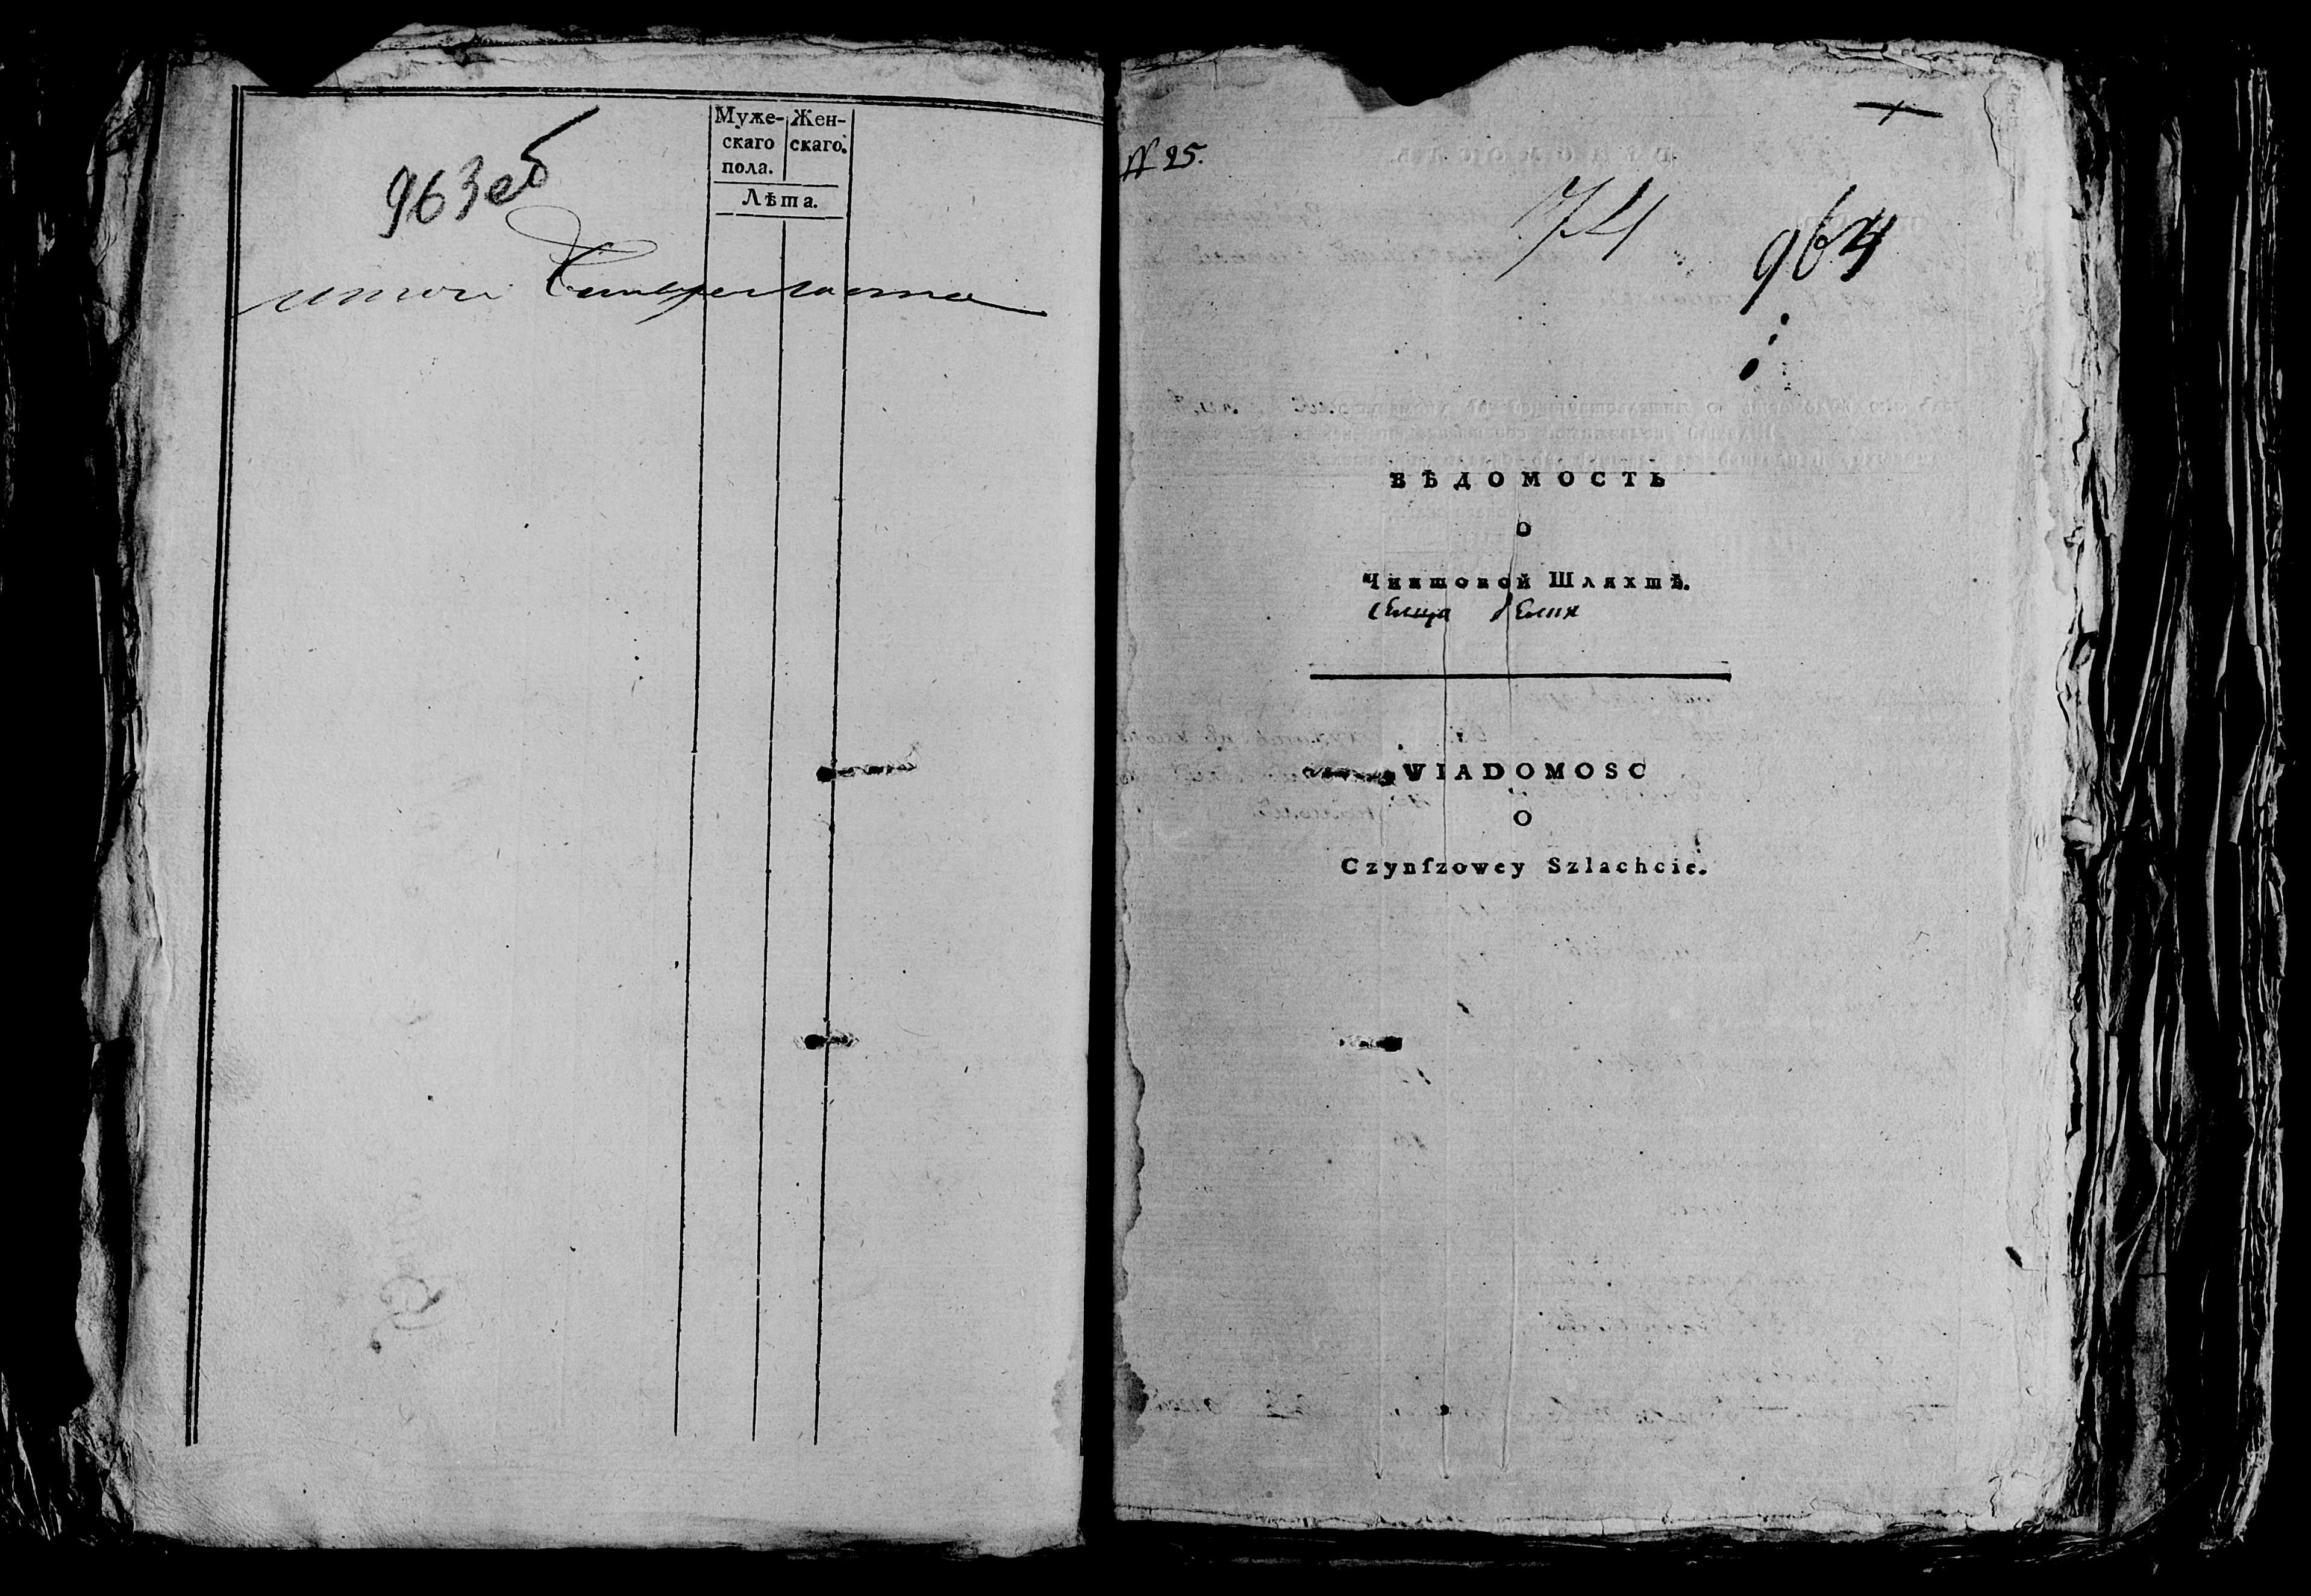 963об
Муже-
скаго
пола.
Жен-
скаго.
Лѣта.
N 25.
74
964
ВѢДОМОСТЬ
О
Чиншовой Шляхтѣ.
WIADOMOSC
O
Czynſzowey Szlachcie.